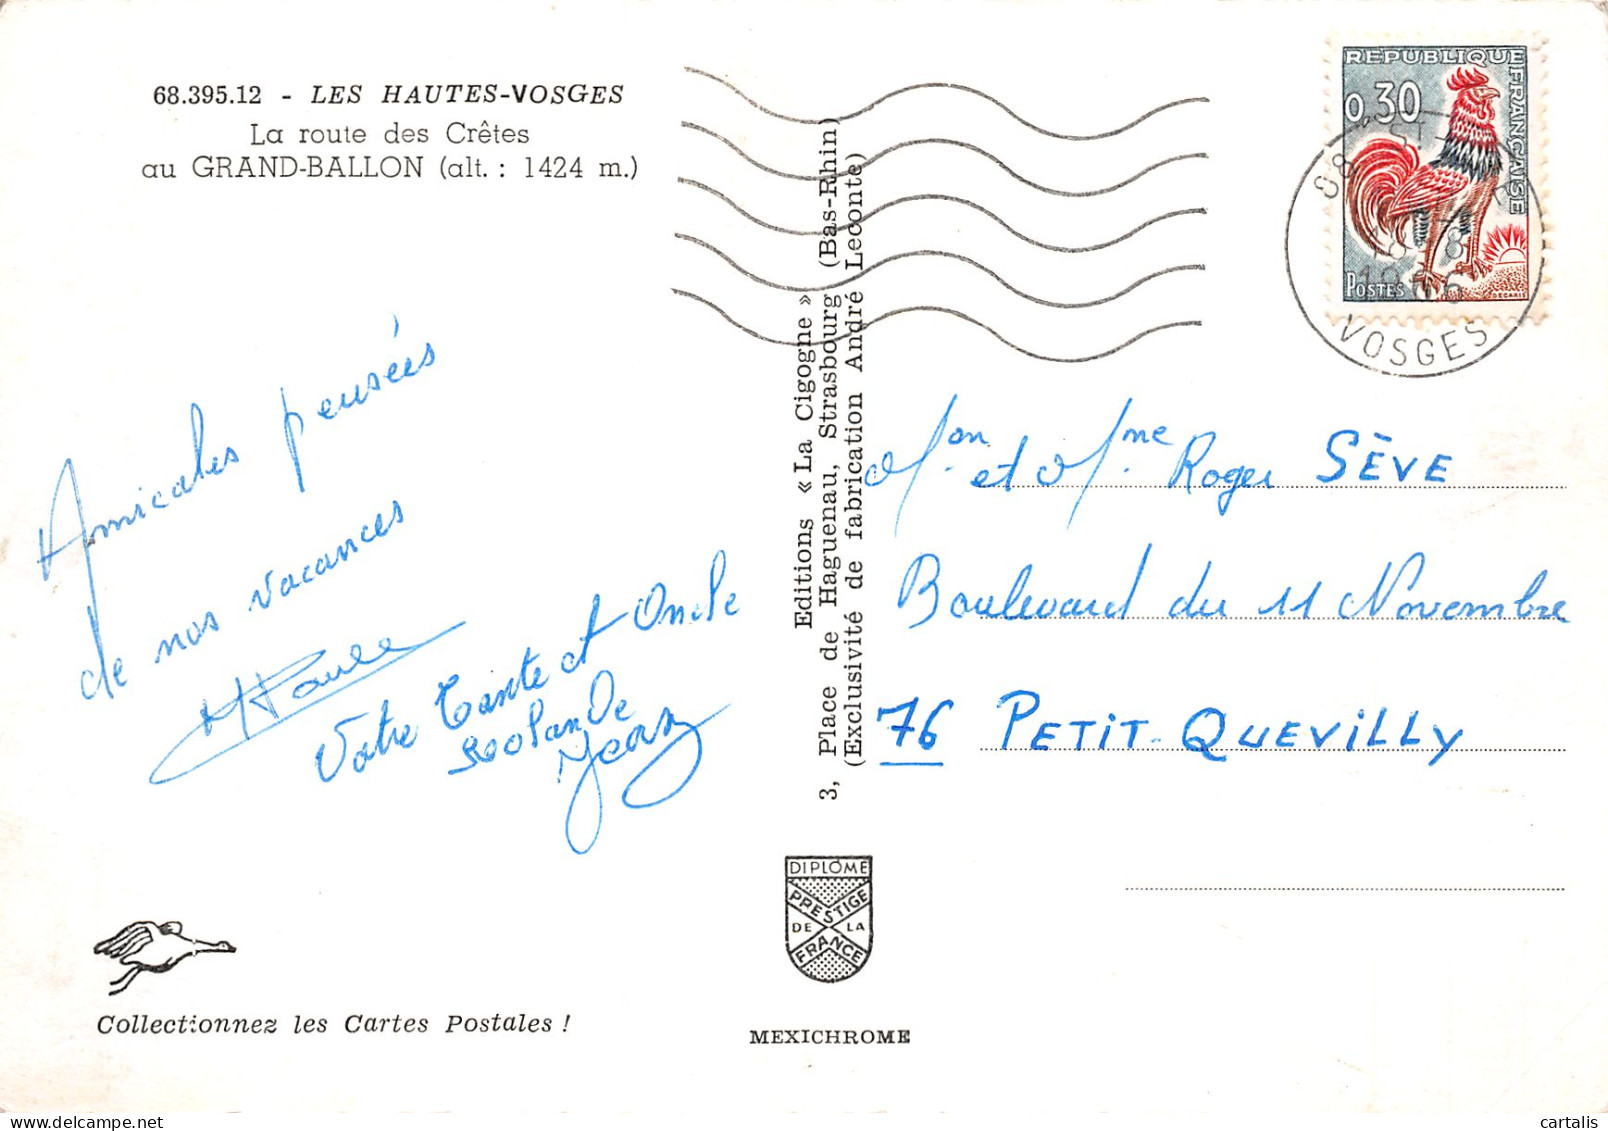 68.395.12 - LES HAUTES-VOSGES
La route des Crêtes
au GRAND-BALLON (alt. : 1424 m.)
Amicales pensées
de nos vacances
Paule
Votre Tante et Oncle
Jean
Editions « La Cigogne »
3, Place de Haguenau, Strasbourg (Bas-Rhin)
(Exclusivité de fabrication André Leconte)
REPUBLIQUE FRANÇAISE
0,30
POSTES
DECARIS
88 ST
VOSGES
Mon et Mme Roger SÈVE
Boulevard du 11 Novembre
76 PETIT-QUEVILLY
DIPLÔME
PRESTIGE
DE LA
FRANCE
Collectionnez les Cartes Postales !
MEXICHROME
cartalis